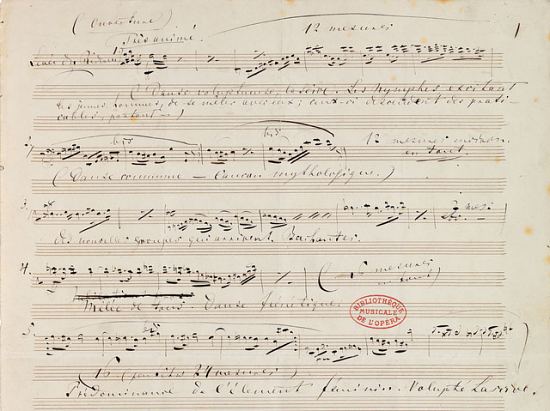 (Ouverture)
Très animé. 12 mesures 1
(Danse voluptueuse, lascive. Les Nymphes excitent
les jeunes hommes de se mêler avec eux; ceux-ci descendent des prati
cables, partout—)
2, bis bis 12 mesures environ
en tout.
(Danse commune — Cancan mythologique.)
3.
de nouvelles groupes qui arrivent Bachantes.
4. mesures
en tout)
Mêlée de tous Danse frénétique
BIBLIOTHÈQUE
MUSICALE
DE L'OPÉRA
5
16 ( 24 mesures)
Prédominance de l'élément féminin. Volupté Lascive.